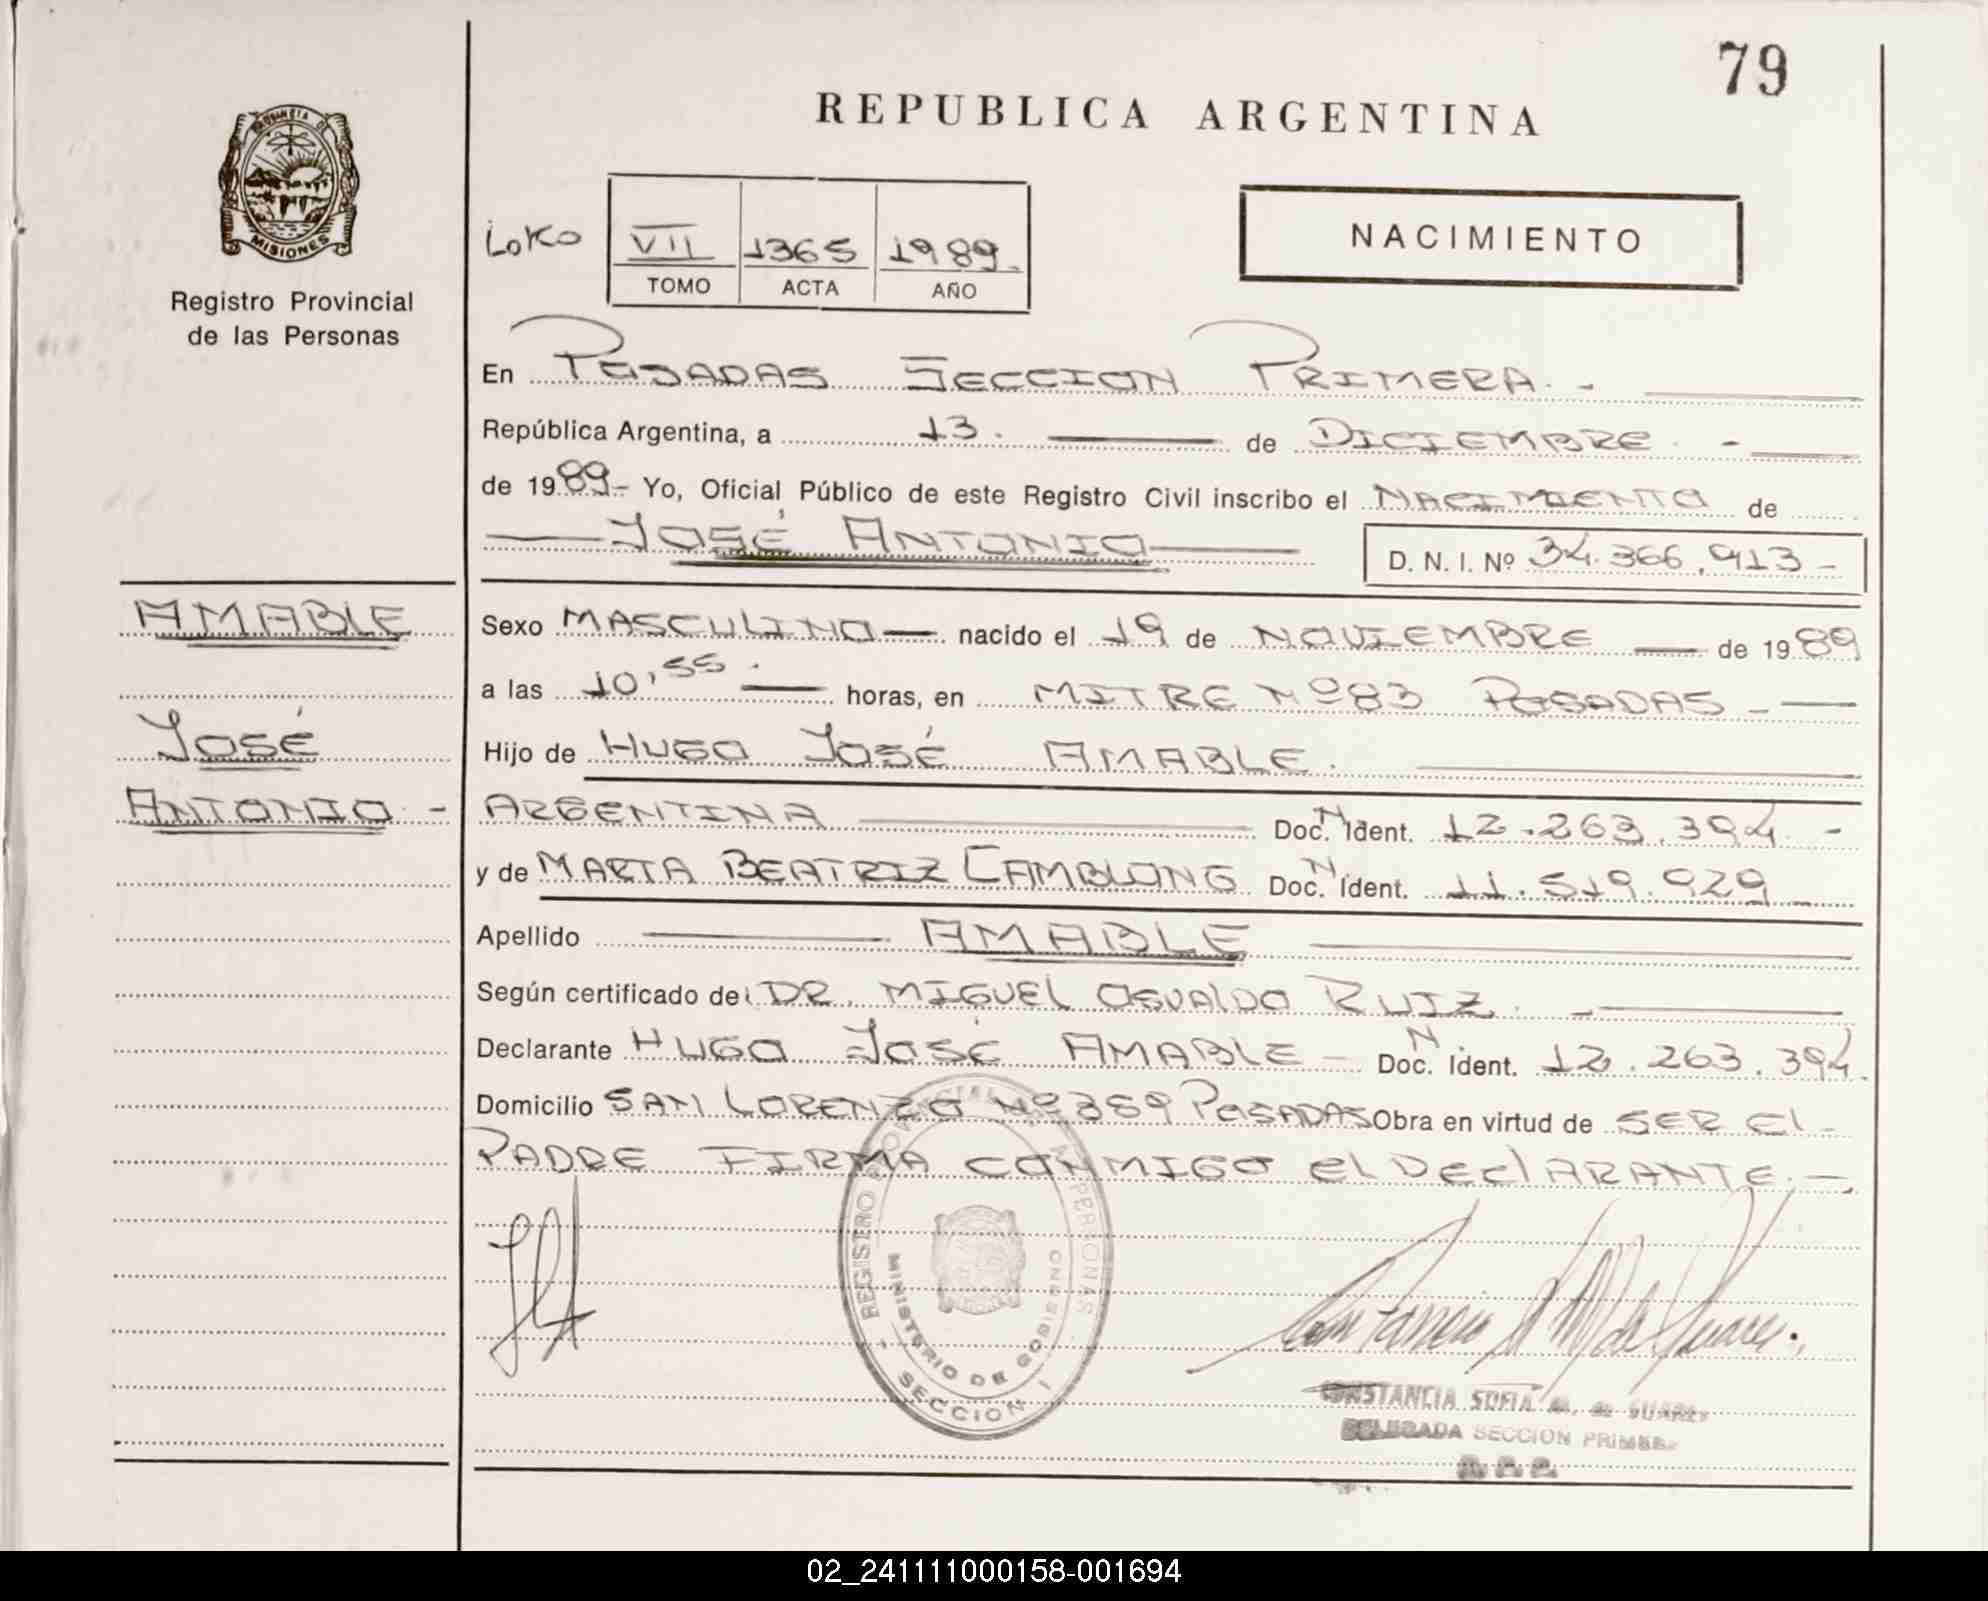 79
REPUBLICA ARGENTINA
PROVINCIA DE
MISIONES
Registro Provincial
de las Personas
VII 1365 1989.
TOMO ACTA AÑO
NACIMIENTO
En POSADAS SECCION PRIMERA.-
República Argentina, a 13. de DICIEMBRE.-
de 1989- Yo, Oficial Público de este Registro Civil inscribo el NACIMIENTO de
JOSÉ ANTONIO
D. N. I. Nº 34.366.913-
AMABLE
JOSÉ
ANTONIO-
Sexo MASCULINO nacido el 19 de NOVIEMBRE de 1989
a las 10,55. horas, en MITRE Nº 83 POSADAS-
Hijo de HUGO JOSÉ AMABLE.
ARGENTINA Doc. N Ident. 12.263.394.-
y de MARTA BEATRIZ CAMBLONG Doc. N Ident. 11.519.929-
Apellido AMABLE
Según certificado del DR. MIGUEL OSVALDO RUIZ.-
Declarante HUGO JOSÉ AMABLE- Doc. N Ident. 12.263.394.
Domicilio SAN LORENZO Nº 359 POSADAS Obra en virtud de SER El-
PADRE FIRMA CONMIGO El DEClARANTE.-
REGISTRO PROVINCIAL DE LAS PERSONAS
MINISTERIO DE GOBIERNO
SECCION I
CONSTANCIA SOFIA M. de SUAREZ
DELEGADA SECCION PRIMERA
02_241111000158-001694